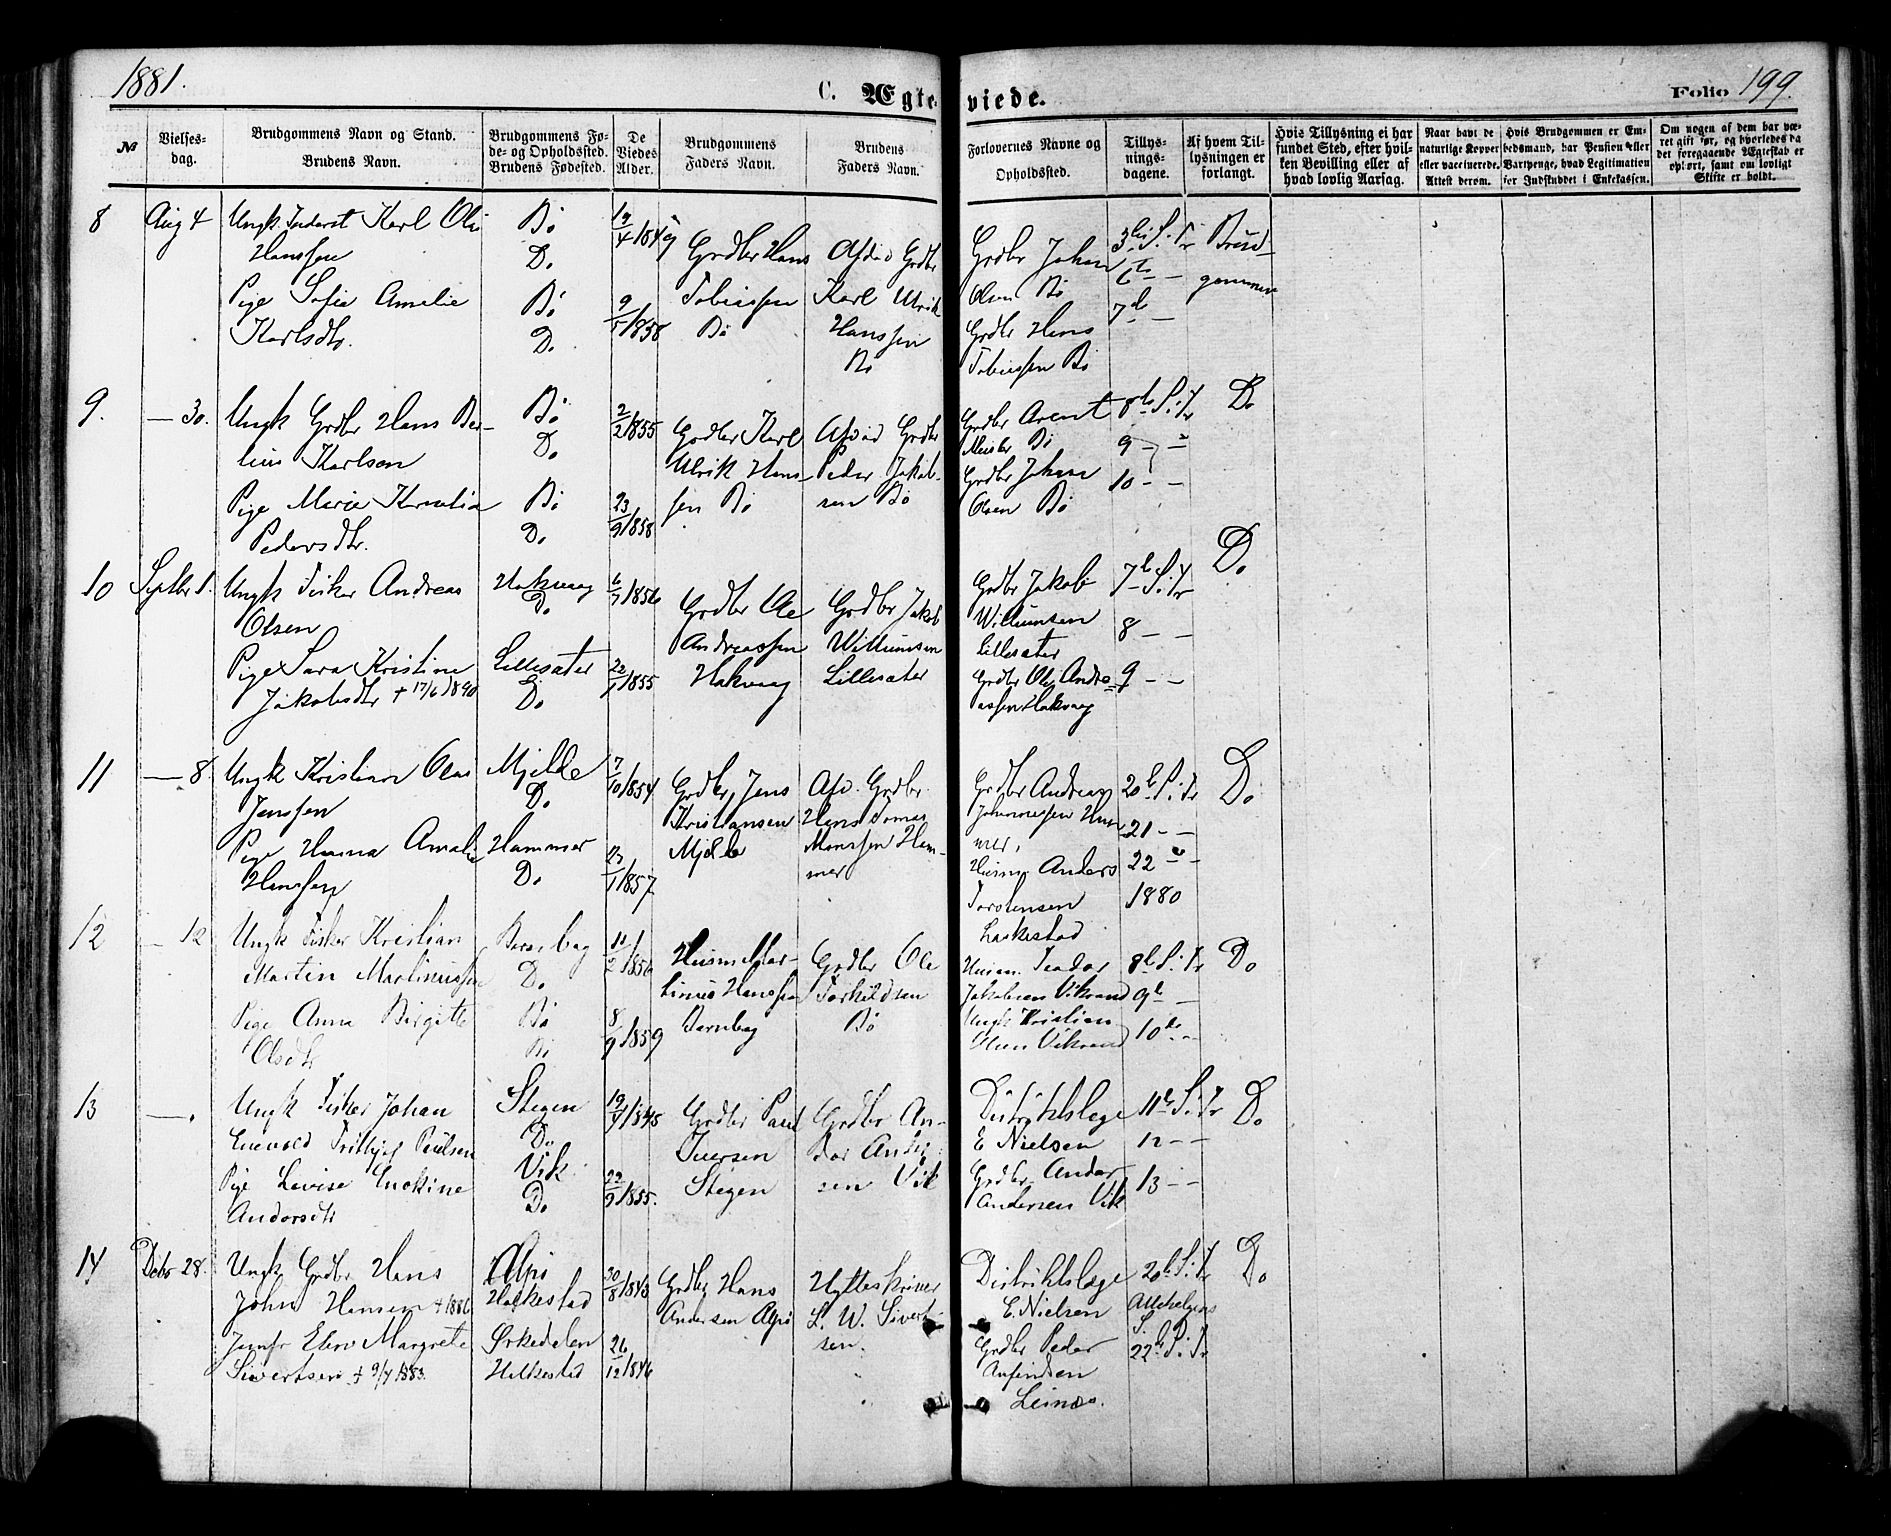 1881.
C. Ægteviede.
Folio 199.
№
Vielses-
dag.
Brudgommens Navn og Stand.
Brudens Navn.
Brudgommens Fø-
de- og Opholdssted.
Brudens Fødested.
De
Viedes
Alder.
Brudgommens
Faders Navn.
Brudens
Faders Navn.
Forlovernes Navne og
Opholdssted.
Tillys-
nings-
dagene.
Af hvem Til-
lysningen er
forlangt.
Hvis Tillysning ei har
fundet Sted, efter hvil-
ken Bevilling eller af
hvad lovlig Aarsag.
Naar havt de
naturlige Kopper
eller vaccinerede.
Attest derom.
Hvis Brudgommen er Em-
bedsmand, har Pension eller
Vartpenge, hvad Legitimation
for Indskuddet i Enkekassen.
Om nogen af dem har væ-
ret gift før, og hvorledes da
det foregaaende Ægteskab er
ophørt, samt om lovligt
Skifte er holdt.
8
Aug 4
Ungk. Inderst Karl Ole
Hanssen
Pige Sofie Amalie
Karlsdtr.
Bø
Do
Bø
Do
9/5 1858
Grdbr Hans
Tobiassen
Bø
Afdød Grdbr
Karl Ulrik
Hanssen
Bø
Grdbr Johan
Olsen Bø
Grdbr Hans
Tobiassen Bø
3die S. Tr
6te — —
7de —
Brud-
gommen
9.
— 30.
Ungk Grdbr Hans Ber-
Karlsen
Pige Marie Kornelia
Pedersdtr.
Bø
Do
Bø
Do
2/2 1855
23/9 1858
Grdbr Karl
Ulrik Hans-
sen Bø
Afdød Grdbr
Peder Jakob-
sen Bø
Grdbr Arent
Meisler Bø
Grdbr Johan
Olsen Bø
8de S. e. Tr
9 — —
10 — —
Do
10
Septbr 1.
Ungk Fisker Andreas
Olsen
Pige Sara Kristine
Jakobsdtr + 17/6 1890
Hakvaag
Do
Lillesæter
Do
6/7 1856
22/1 1855
Grdbr Ole
Andreassen
Hakvaag
Grdbr Jakob
Willumsen
Lillesæter
Grdbr Jakob
Willumsen
Lillesæter
Grdbr Ole Andre-
assen Hakvaag
7de S. e. Tr
8 — —
9 — —
Do
11
— 8.
Ungk Kristian Olai
Jenssen
Pige Hanna Amalie
Hanssen
Mjelde
Do
Hammer
Do
7/10 1854
Grdbr Jens
Kristiansen
Mjelde
Afd. Grdbr
Hans Tomas
Monssen Ham-
mer
Grdbr Andreas
Johannessen Ham-
mer,
Husm. Anders
Torstensen
Laskestad
20de S. e. Tr
21 — —
22 — —
1880
Do
12
— 12
Ungk Fisker Kristian
Martin Martinussen
Pige Anna Birgitte
Olsdtr
Do
Bø
Bø
8/9 1859
Husm Mar-
tinus Hanssen
Grdbr Ole
Torkildsen
Bø
Husm. Teodor
Jakobsen Vikrand
Ungk Kristian
Vikrand
8de S. e. Tr
9de —
10de — —
Do
13
— .
Ungk Fisker Johan
Enevold Frithjof Paulsen
Pige Lovise Enokine
Andorsdtr
Stegen
Do
Vik
Do
19/4 1845
22/9 1855.
Grdbr Paul
Iversen
Stegen
Grdbr An-
dor Ander-
sen Vik
Distriktslæge
E Nielsen
Grdbr. Andor
Andersen Vik
11te S. e. Tr
12 — —
13 — —
Do
14
Debr 28.
Ungk Grdbr Hans
John Hansen + 1886
Jomfr Elen Margrete
Sivertsen + 9/4 1883.
Alpø
Helkestad
Ørkedalen
Helkestad
30/8 1843
26/12 1846
Grdbr Hans
Andersen Alpø
Hytteskriver
L. W. Sivert-
sen.
Distriktslæge
E. Nielsen
Grdbr Peder
Anfindsen
Leines.
20de S. e. Tr
Allehelgens
S.
22de S. e. Tr
Do